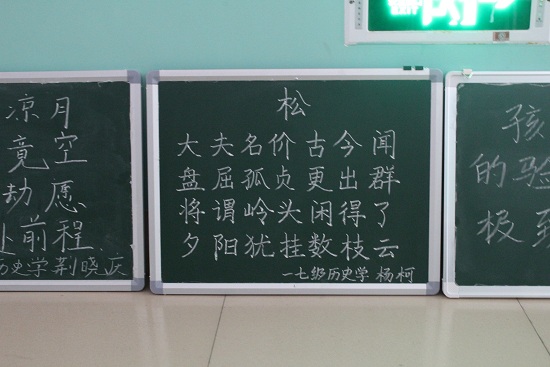 凉月
竟空
劫愿
前程
历史学荆晓庆
松
大夫名价古今闻
盘屈孤贞更出群
将谓岭头闲得了
夕阳犹挂数枝云
一七级历史学 杨柯
孩
的验
极